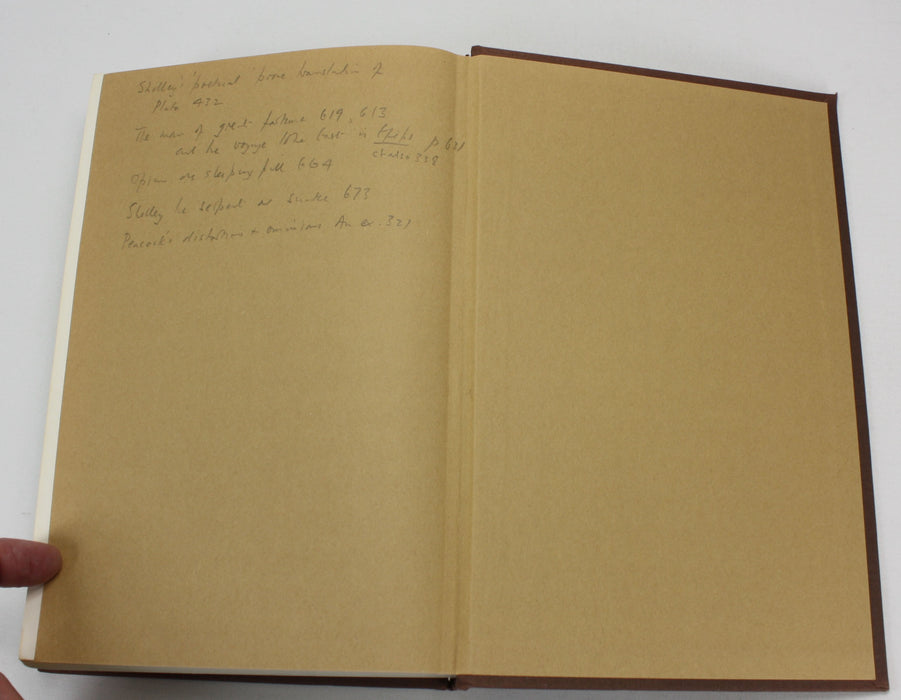 Shelley's 'poetical' prose translation of
Plato 432
The man of great fortune 619, 613
and the voyage to the East in Epips p 621
see also 338
Opium as sleeping pill 664
Shelley the serpent or snake 673
Peacock's distortions & omissions An ex. 321